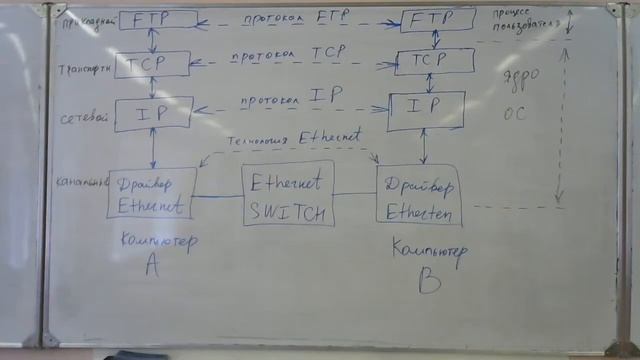 прикладной FTP протокол FTP FTP процесс
пользователя
транспортн TCP протокол TCP TCP
ядро
сетевой IP протокол IP IP ОС
Технология Ethernet
канальный Драйвер Ethernet Драйвер
Ethernet SWITCH Etherten
Компьютер Компьютер
A B